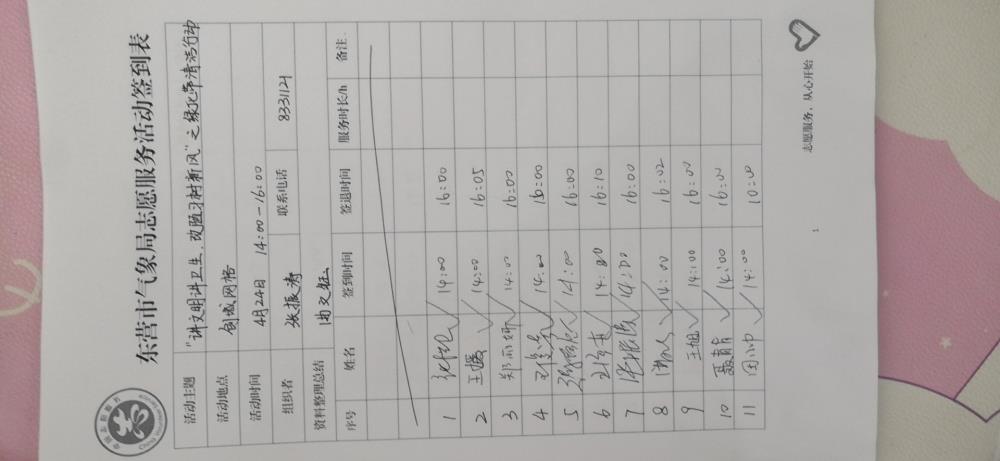 东营市气象局志愿服务活动签到表
活动主题 "讲文明讲卫生,改陋习树新风"之绿化带清洁行动
活动地点 创城网格
活动时间 4月24日 14:00-16:00
组织者 张振涛 联系电话 8331121
资料整理总结
序号 姓名 签到时间 签退时间 服务时长/h 备注
1 14:00 16:00
2 王媛 14:00 16:05
3 郑雨妍 14:00 16:00
4 14:00 16:00
5 14:00 16:00
6 14:00 16:10
7 14:00 16:00
8 14:00 16:02
9 王旭 14:00 16:00
10 聂青青 14:00 16:00
11 14:00
1
志愿服务,从心开始